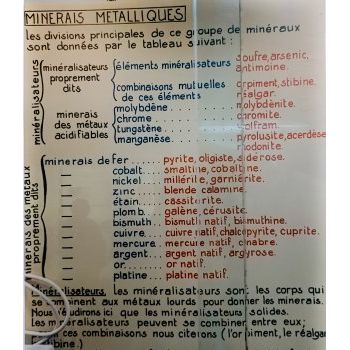 MINERAIS METALLIQUES
les divisions principales de ce groupe de minéraux
sont données par le tableau suivant :
minéralisateurs
minéralisateurs proprement dits
éléments minéralisateurs
soufre, arsenic, antimoine.
combinaisons mutuelles de ces éléments
orpiment, stibine, réalgar.
minerais des métaux acidifiables
molybdène ..... molybdénite.
chrome ..... chromite.
tungstène ..... wolfram.
manganèse ..... pyrolusite, acerdèse, rhodonite.
minerais des métaux proprement dits
minerais de fer .... pyrite, oligiste, sidérose.
— cobalt .... smaltine, cobaltine.
— nickel .... millérite, garniérite.
— zinc ..... blende calamine.
— étain ..... cassitérite.
— plomb ... galène, cérusite.
— bismuth .. bismuth natif, bismuthine.
— cuivre .... cuivre natif, chalcopyrite, cuprite.
— mercure .. mercure natif, cinabre.
— argent .... argent natif, argyrose.
— or ..... or natif.
— platine ... platine natif.
Minéralisateurs, les minéralisateurs sont les corps qui
se combinent aux métaux lourds pour donner les minerais.
Nous n'étudirons ici que les minéralisateurs solides.
Les minéralisateurs peuvent se combiner entre eux;
ces combinaisons nous citerons (l'orpiment, le réalgar
stibine.)